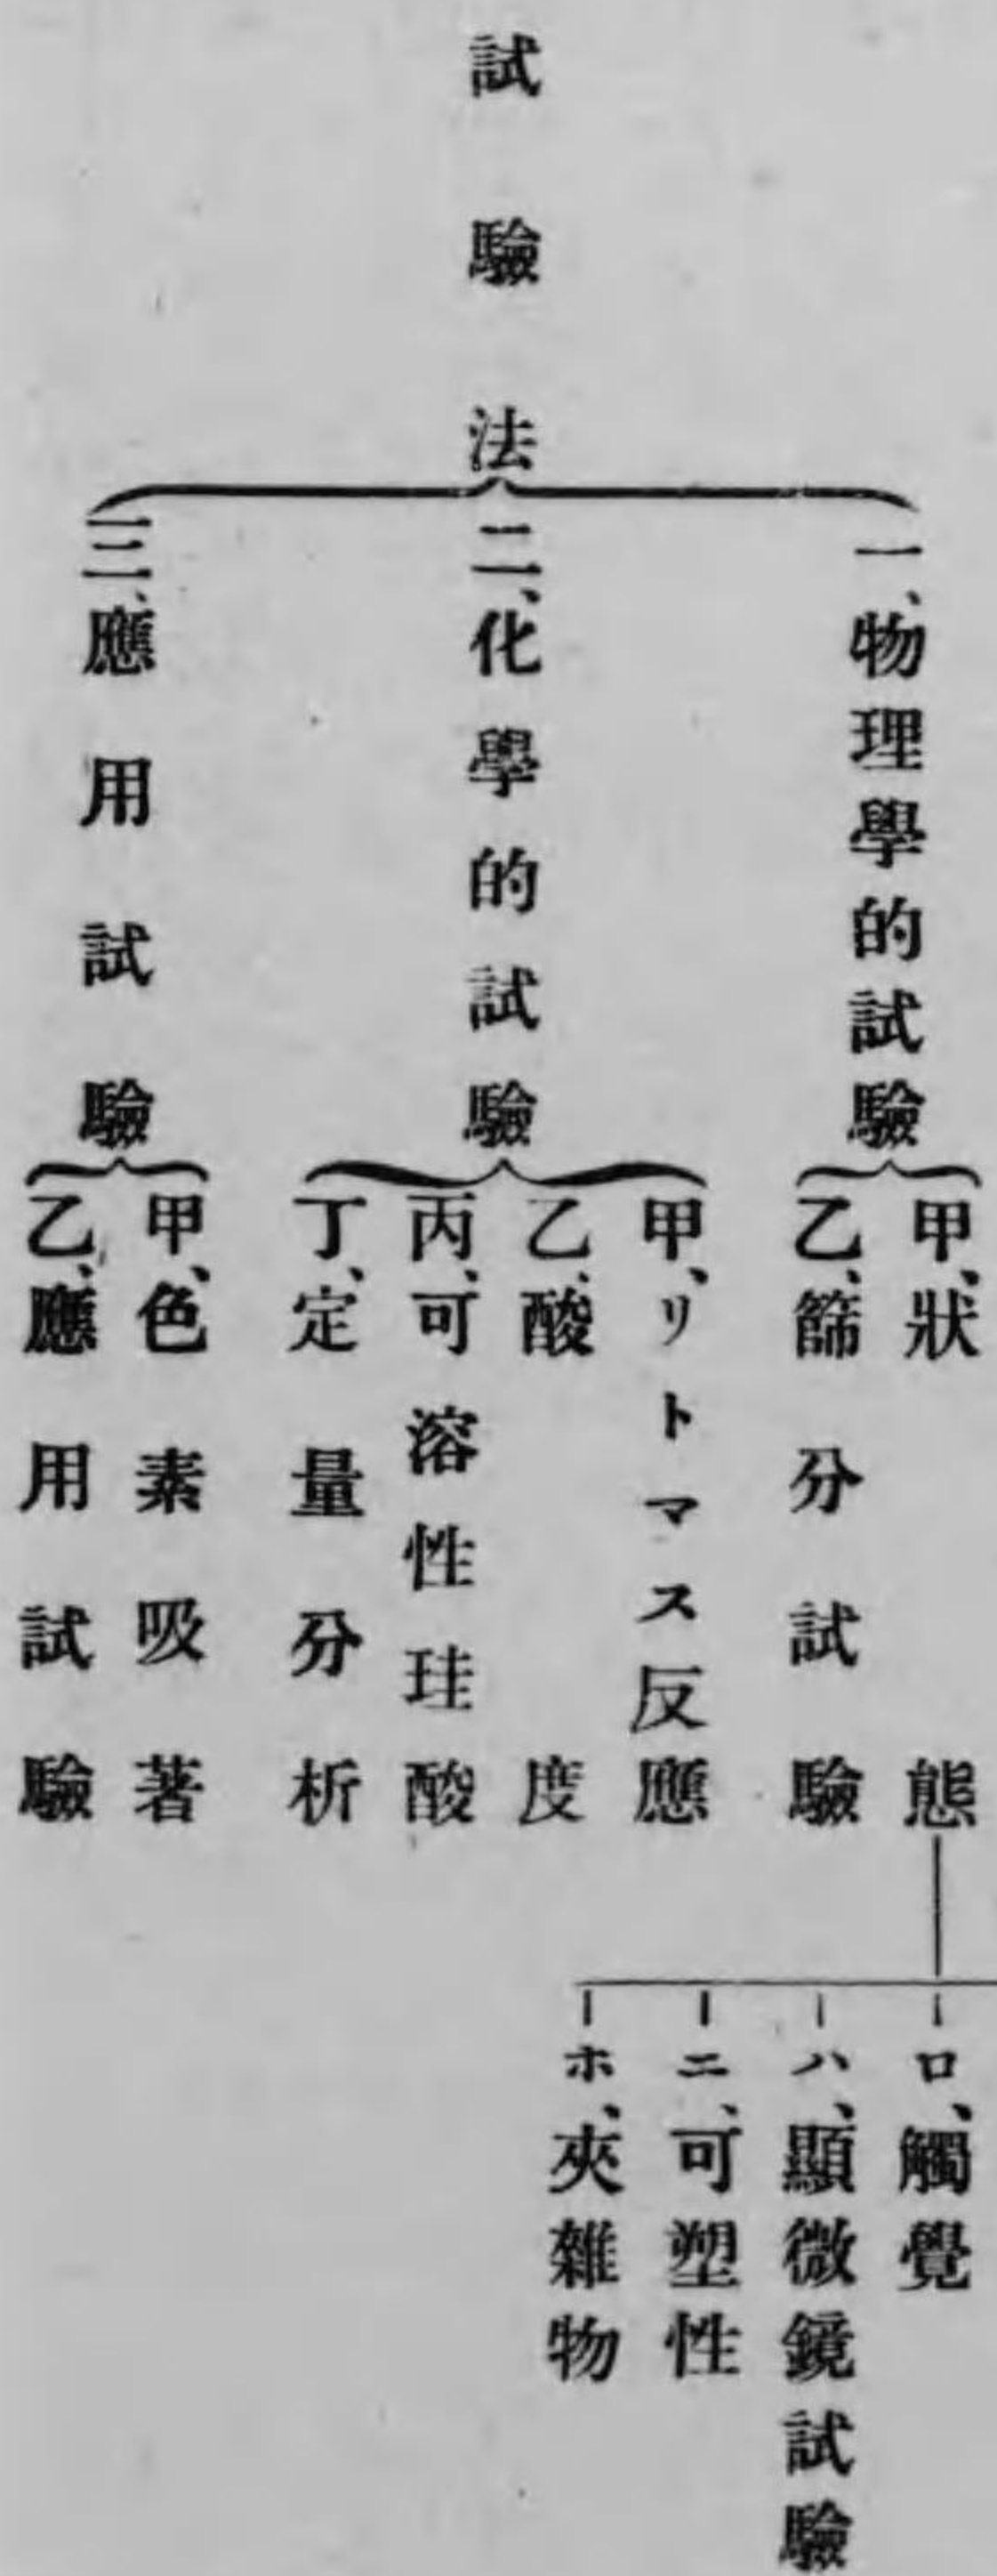 試驗法
一、物理學的試驗
甲、狀態
ロ、觸覺
ハ、顯微鏡試驗
ニ、可塑性
ホ、夾雜物
乙、篩分試驗
二、化學的試驗
甲、リトマス反應
乙、酸度
丙、可溶性珪酸
丁、定量分析
三、應用試驗
甲、色素吸著
乙、應用試驗